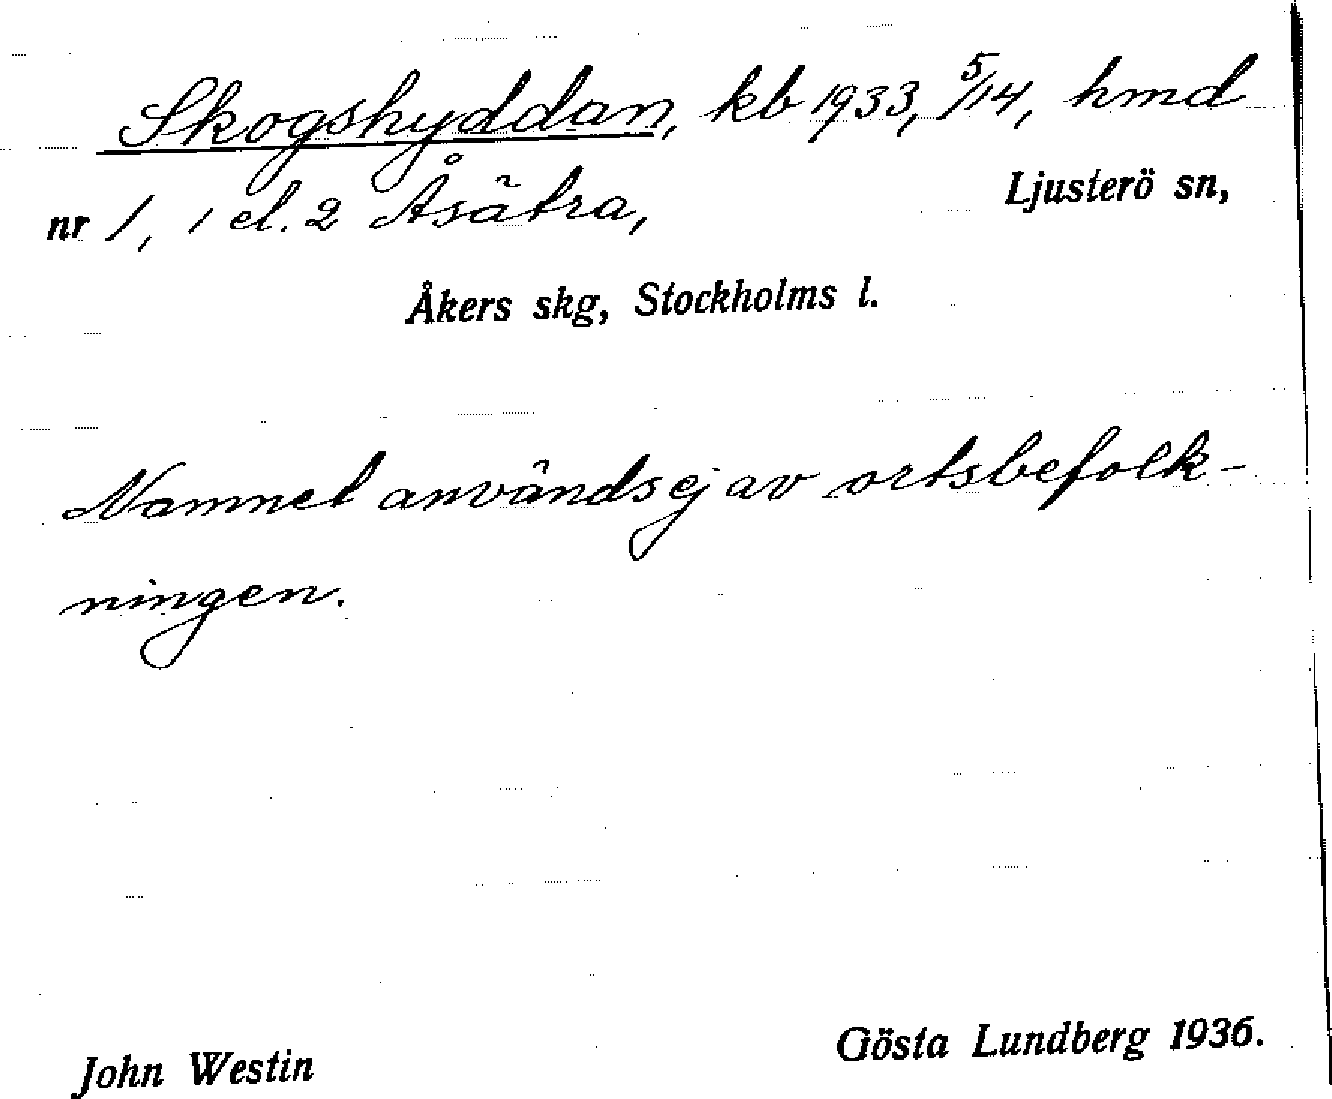 Skogshyddan, kb 1933, 5/14, hmd
nr 1, 1 el. 2 Åsätra, Ljusterö sn,
Åkers skg, Stockholms l.
Namnet användsej av ortsbefolk-
ningen.
John Westin Gösta Lundberg 1936.